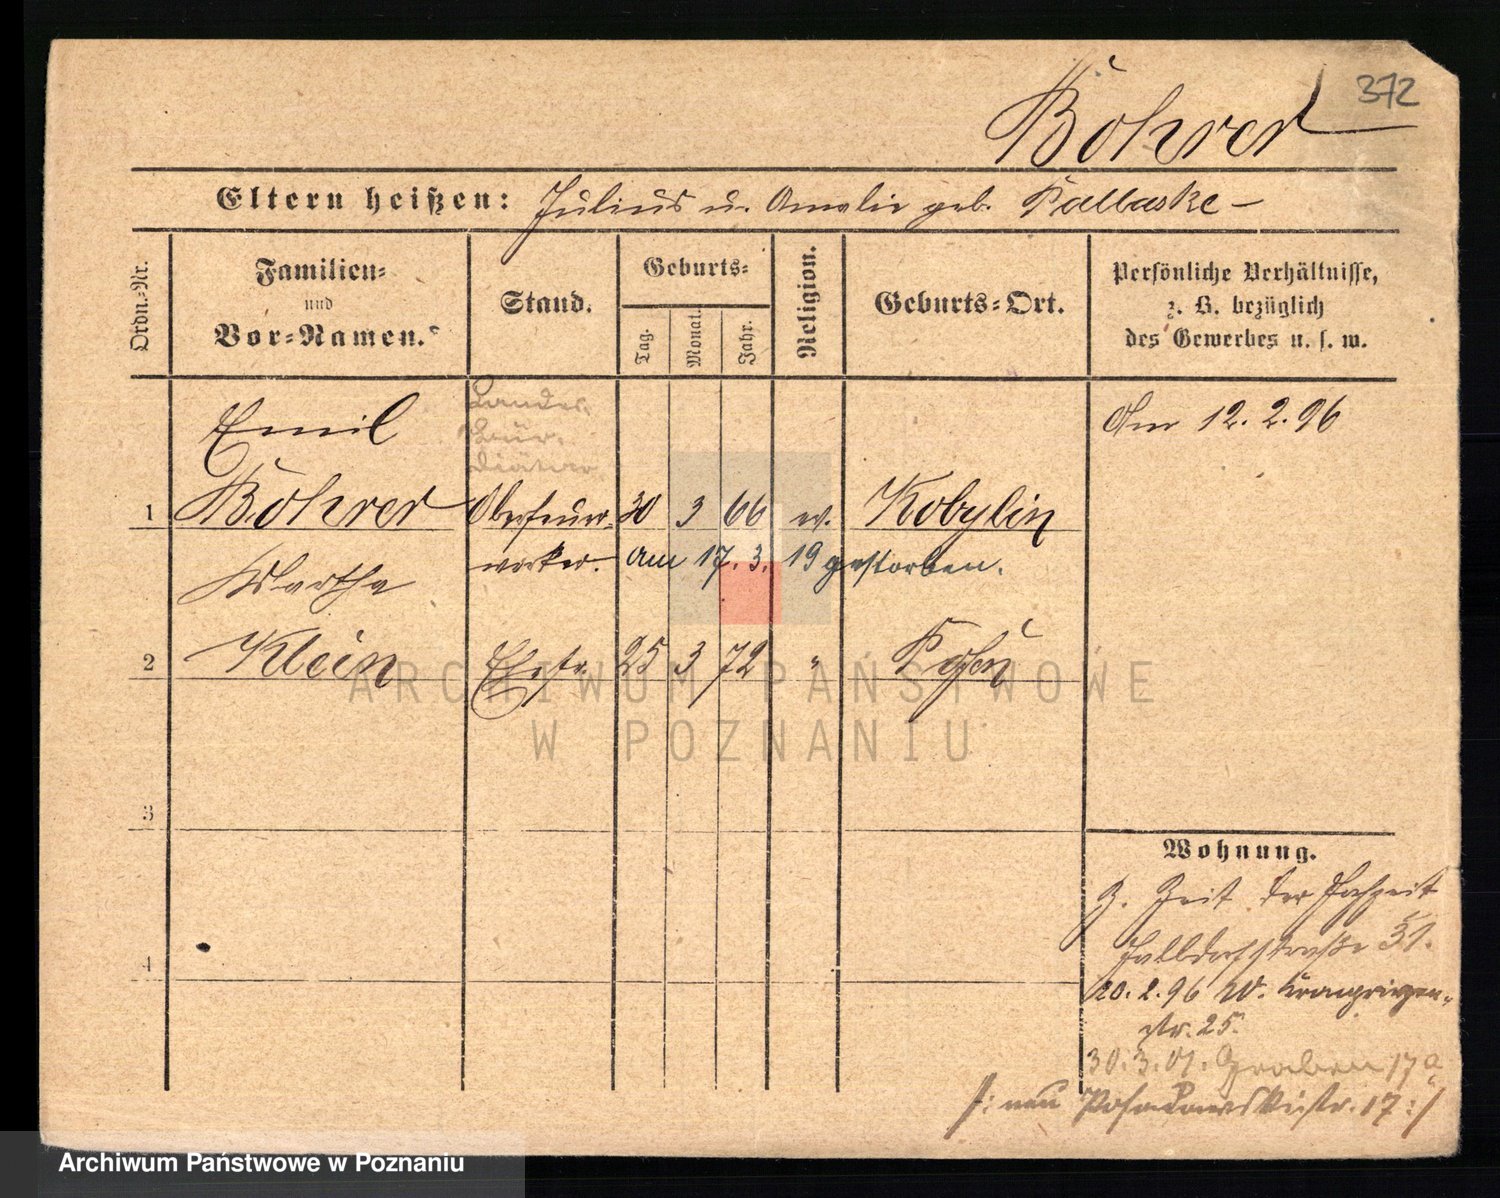 372
Böhrer
Eltern heißen: Julius u. Amalie geb. Pallaske –
Ordn.-Nr.
Familien-
und
Vor-Namen.
Stand.
Geburts-
Tag.
Monat.
Jahr.
Religion.
Geburts-Ort.
Persönliche Verhältnisse,
z. B. bezüglich
des Gewerbes u. s. w.
Emil
Landes-
Am 12.2.96
1 Böhrer Oberfeuer- 30 3 66 ev. Kobylin
werker. am 17. 3. 19 gestorben.
Martha
2 Klein Ehefr. 25 3 72 " Posen
ARCHIWUM PAŃSTWOWE
W POZNANIU
3
4
Wohnung.
z. Zeit der Hochzeit
Halldorfstraße 31.
20.2.96 W. Kronprinzen-
str. 25.
30.3.01. Graben 17a
/: neu Posadowskystr. 17 :/
Archiwum Państwowe w Poznaniu